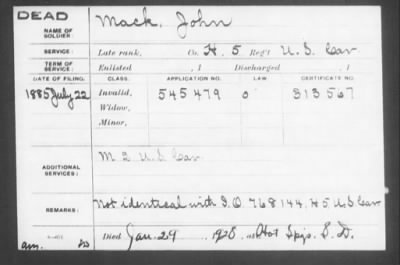 DEAD
NAME OF SOLDIER: Mack, John
SERVICE: Late rank, Co. H. 5 Reg't U.S. Cav
TERM OF SERVICE: Enlisted , 1 Discharged , 1
DATE OF FILING. CLASS. APPLICATION NO. LAW CERTIFICATE NO.
1885 July 22 Invalid, 545479 0 313567
Widow,
Minor,
ADDITIONAL SERVICES: M 2 U.S. Cav
REMARKS: Not identical with I.O. 768144. H 5 U.S. Cav
Died Jan. 29 1928, at Hot Spgs. S. D.